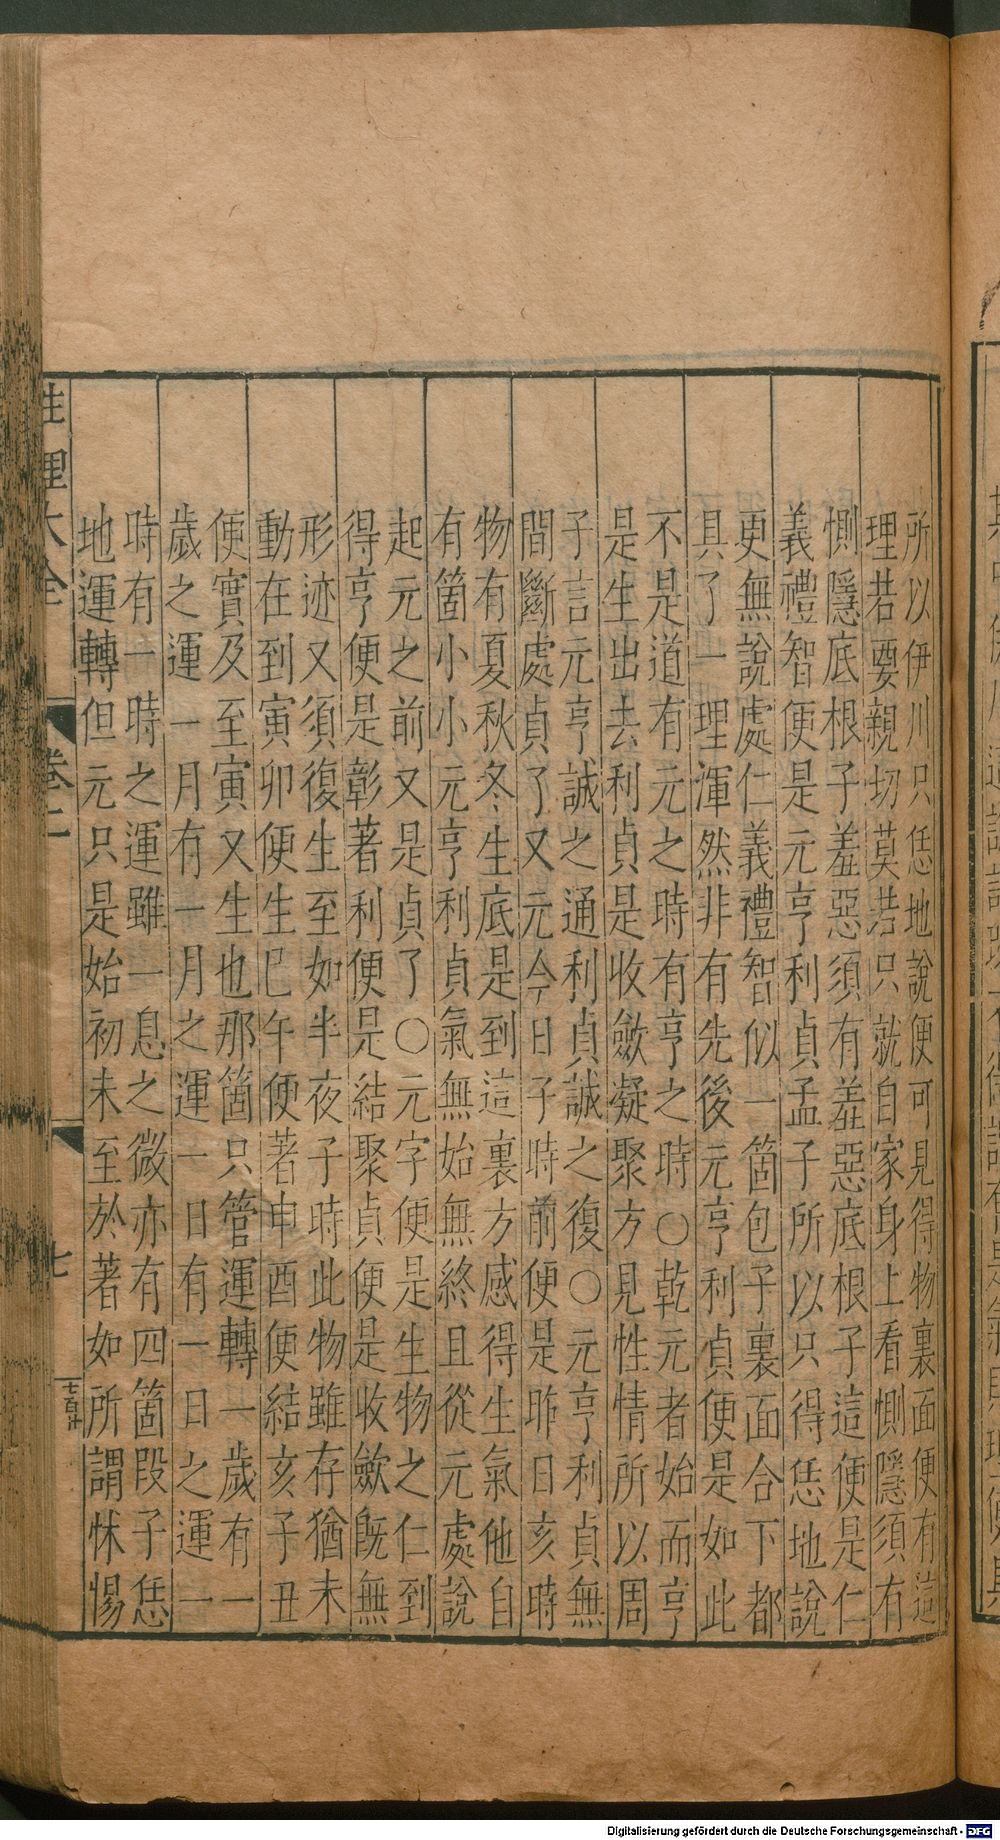 所以伊川只恁地說便可見得物裏面便有這
理若要親切莫若只就自家身上看惻隱須有
惻隱底根子羞惡須有羞惡底根子這便是仁
義禮智便是元亨利貞孟子所以只得恁地說
更無說處仁義禮智似一箇包子裏面合下都
具了一理渾然非有先後元亨利貞便是如此
不是道有元之時有亨之時○乾元者始而亨
是生出去利貞是收斂凝聚方見性情所以周
子言元亨誠之通利貞誠之復○元亨利貞無
間斷處貞了又元今日子時前便是昨日亥時
物有夏秋冬生底是到這裏方感得生氣他自
有箇小小元亨利貞氣無始無終且從元處說
起元之前又是貞了○元字便是生物之仁到
得亨便是彰著利便是結聚貞便是收斂既無
形迹又須復生至如半夜子時此物雖存猶未
動在到寅卯便生巳午便著申酉便結亥子丑
便實及至寅又生也那箇只管運轉一歲有一
歲之運一月有一月之運一日有一日之運一
時有一時之運雖一息之微亦有四箇段子恁
地運轉但元只是始初未至於著如所謂怵惕
性理大全 卷二 七
Digitalisierung gefördert durch die Deutsche Forschungsgemeinschaft - DFG